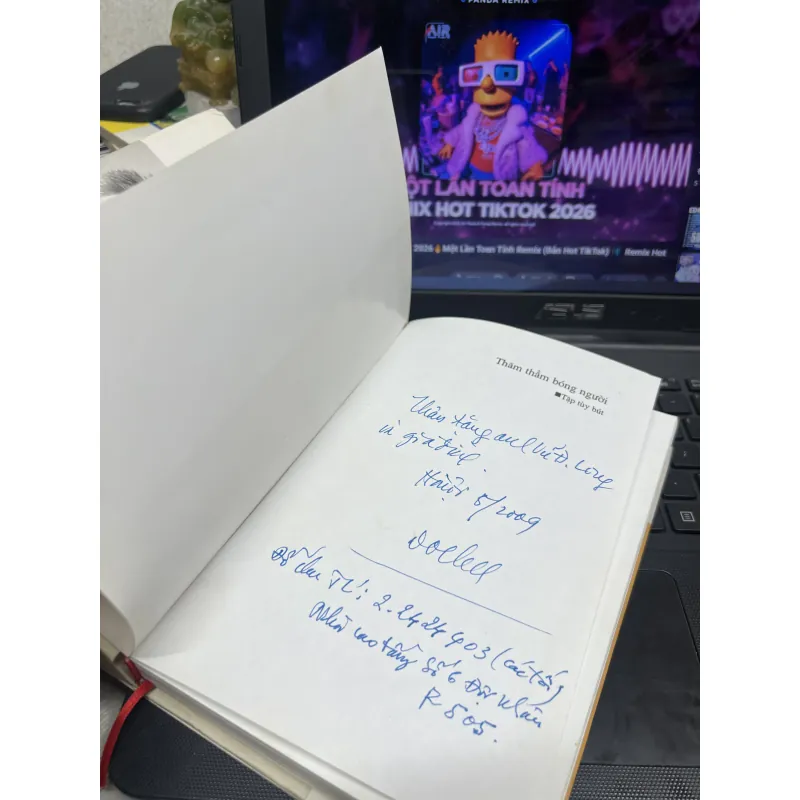 PANDA REMIX
AIR
MỘT LẦN TOAN TÍNH
MIX HOT TIKTOK 2026
2026 🔥Một Lần Toan Tính Remix (Bản Hot TikTok) Remix Hot
ASUS
Thăm thẳm bóng người
■Tập tùy bút
Thân tặng anh Vũ Đ. Long
và gia đình.
Hà Nội 5/2009
Đỗ Chu TL: 2.2424403 (các tối)
Nhà cao tầng số 6 Đội Nhân
R 505.